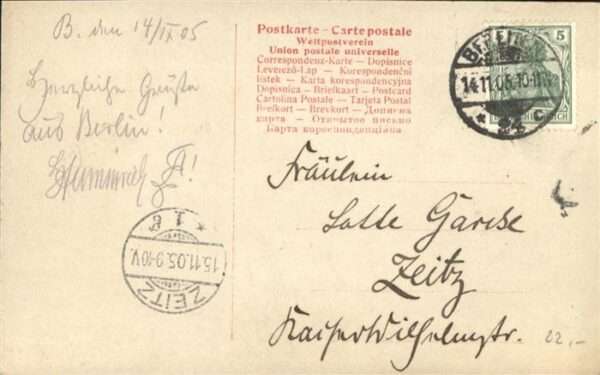 B. den 14/IX 05
Herzliche Grüße
aus Berlin!
Postkarte – Carte postale
Weltpostverein
Union postale universelle
Correspondenz-Karte – Dopisnice
Levelező-Lap – Korespondenční
lístek – Karta korespondencyjna
Dopisnica – Briefkaart – Postcard
Cartolina Postale – Tarjeta Postal
Brefkort – Brevkort – Дописна
карта – Открытое письмо
Карта кореспонденціина
5
BERLIN
14.11.05.10-11V.
* 24 c
REICH
Fräulein
Lotte Garcke
Zeitz
KaiserWilhelmstr.
22,-
ZEITZ
15.11.05.9-10V.
* 1 e